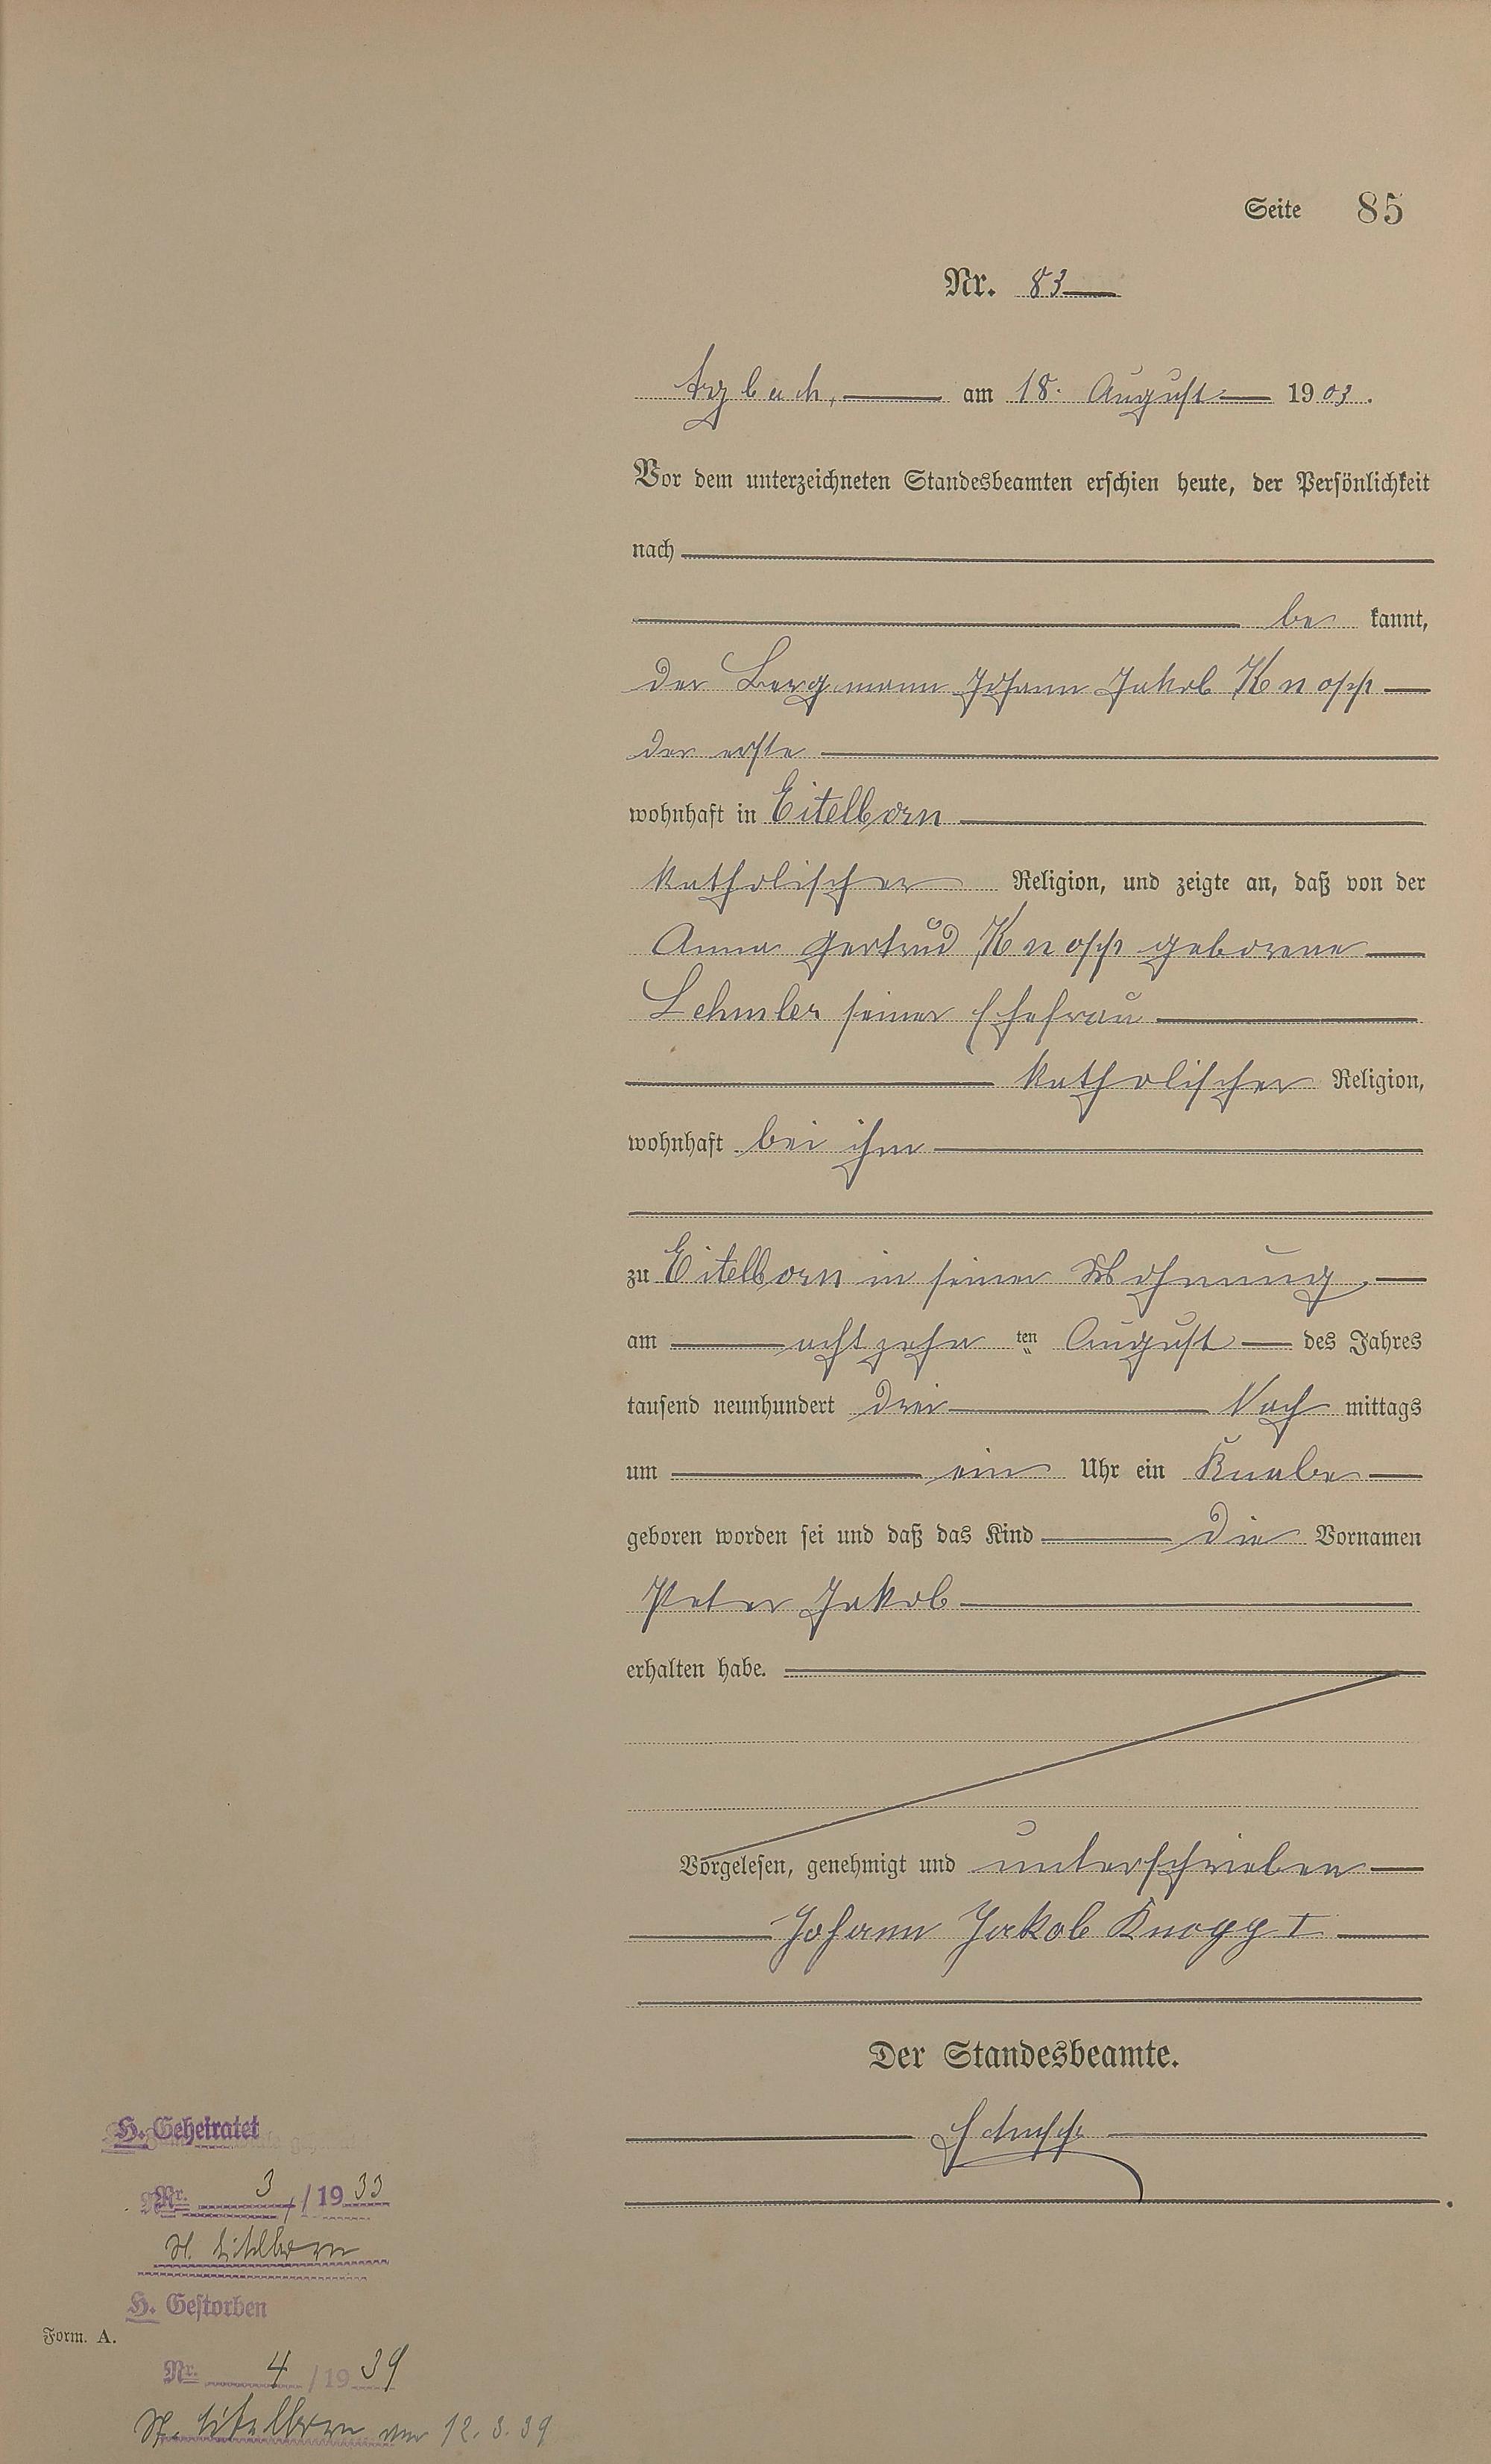 Seite 85
Nr. 83
Arzbach, am 18. August 1903.
Vor dem unterzeichneten Standesbeamten erschien heute, der Persönlichkeit
nach
be kannt,
der Bergmann Johann Jakob Knopp
der erste
wohnhaft in Eitelborn
katholischer Religion, und zeigte an, daß von der
Anna Gertrud Knopp geborene
Lehmler seiner Ehefrau
katholischer Religion,
wohnhaft bei ihm
zu Eitelborn in seiner Wohnung
am achtzehn ten August des Jahres
tausend neunhundert drei Nach mittags
um ein Uhr ein Knabe
geboren worden sei und daß das Kind die Vornamen
Peter Jakob
erhalten habe.
Vorgelesen, genehmigt und unterschrieben
Johann Jakob Knopp I
Der Standesbeamte.
H. Geheiratet
Nr. 3 / 1933
St. Eitelborn
H. Gestorben
Form. A.
Nr. 4 / 1939
St. Eitelborn 12.3.39